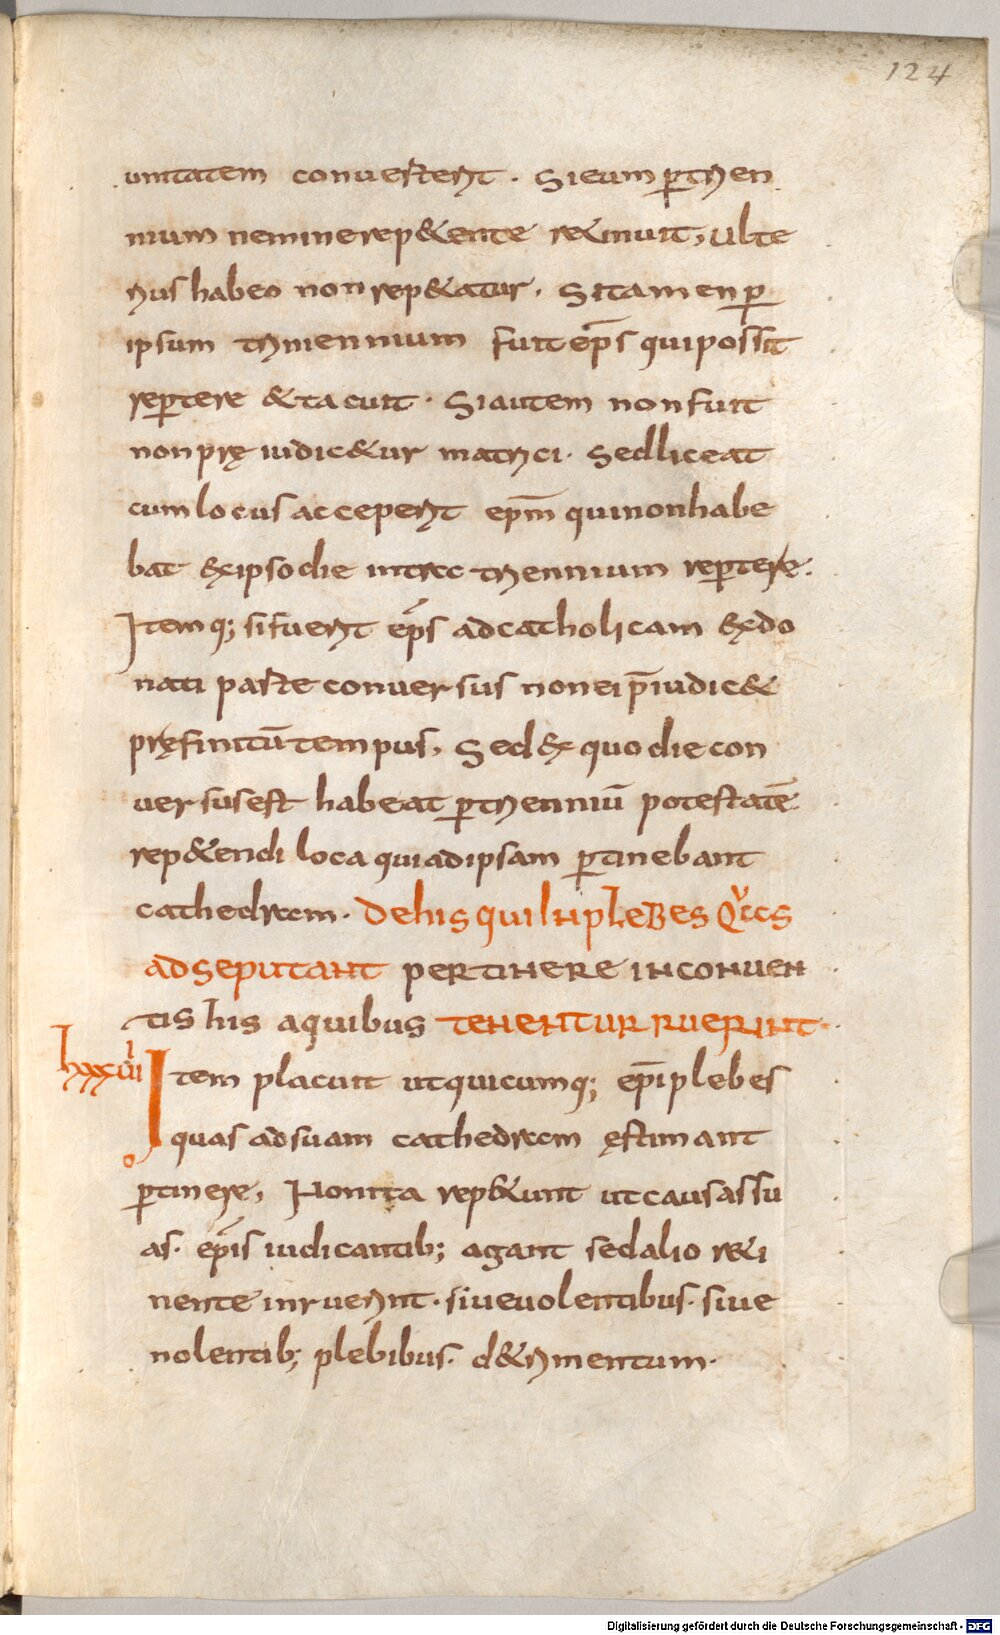 124
unitatem conuerterit. Si eum per trien
nium nemine repetente retinuit, ulte
rius habeo non repetatur. Si tamen p̱
ipsum triennium fuit ep̄s qui possit
rep̱tere & tacuit. Si autem non fuit
non pręiudic&ur matrici. Sed liceat
cum locus acceperit ep̄m qui non habe
bat ex ipso die intra triennium rep̱tere.
Itemq; si fuerit ep̄s ad catholicam ex do
nati parte conuersus non ei p̄iudic&
pręfinitū tempus. Sed ex quo die con
uersus est habeat p̱ trienniū potestatē
rep&endi loca qui ad ipsam p̱tinebant
cathedram. De his qui in plebes quas
ad se putant pertinere inconuen
tis his a quibus tenentur ruerint.
lxxxuii Item placuit ut quicumq; ep̄i plebes
quas ad suam cathedram ęstimant
p̱tinere, Non ita rep&unt ut causas su
as. ep̄is iudicantib; agant sed alio r&i
nente inruerint. siue uolentibus. siue
nolentib; plebibus. d&rimentum.
Digitalisierung gefördert durch die Deutsche Forschungsgemeinschaft - DFG